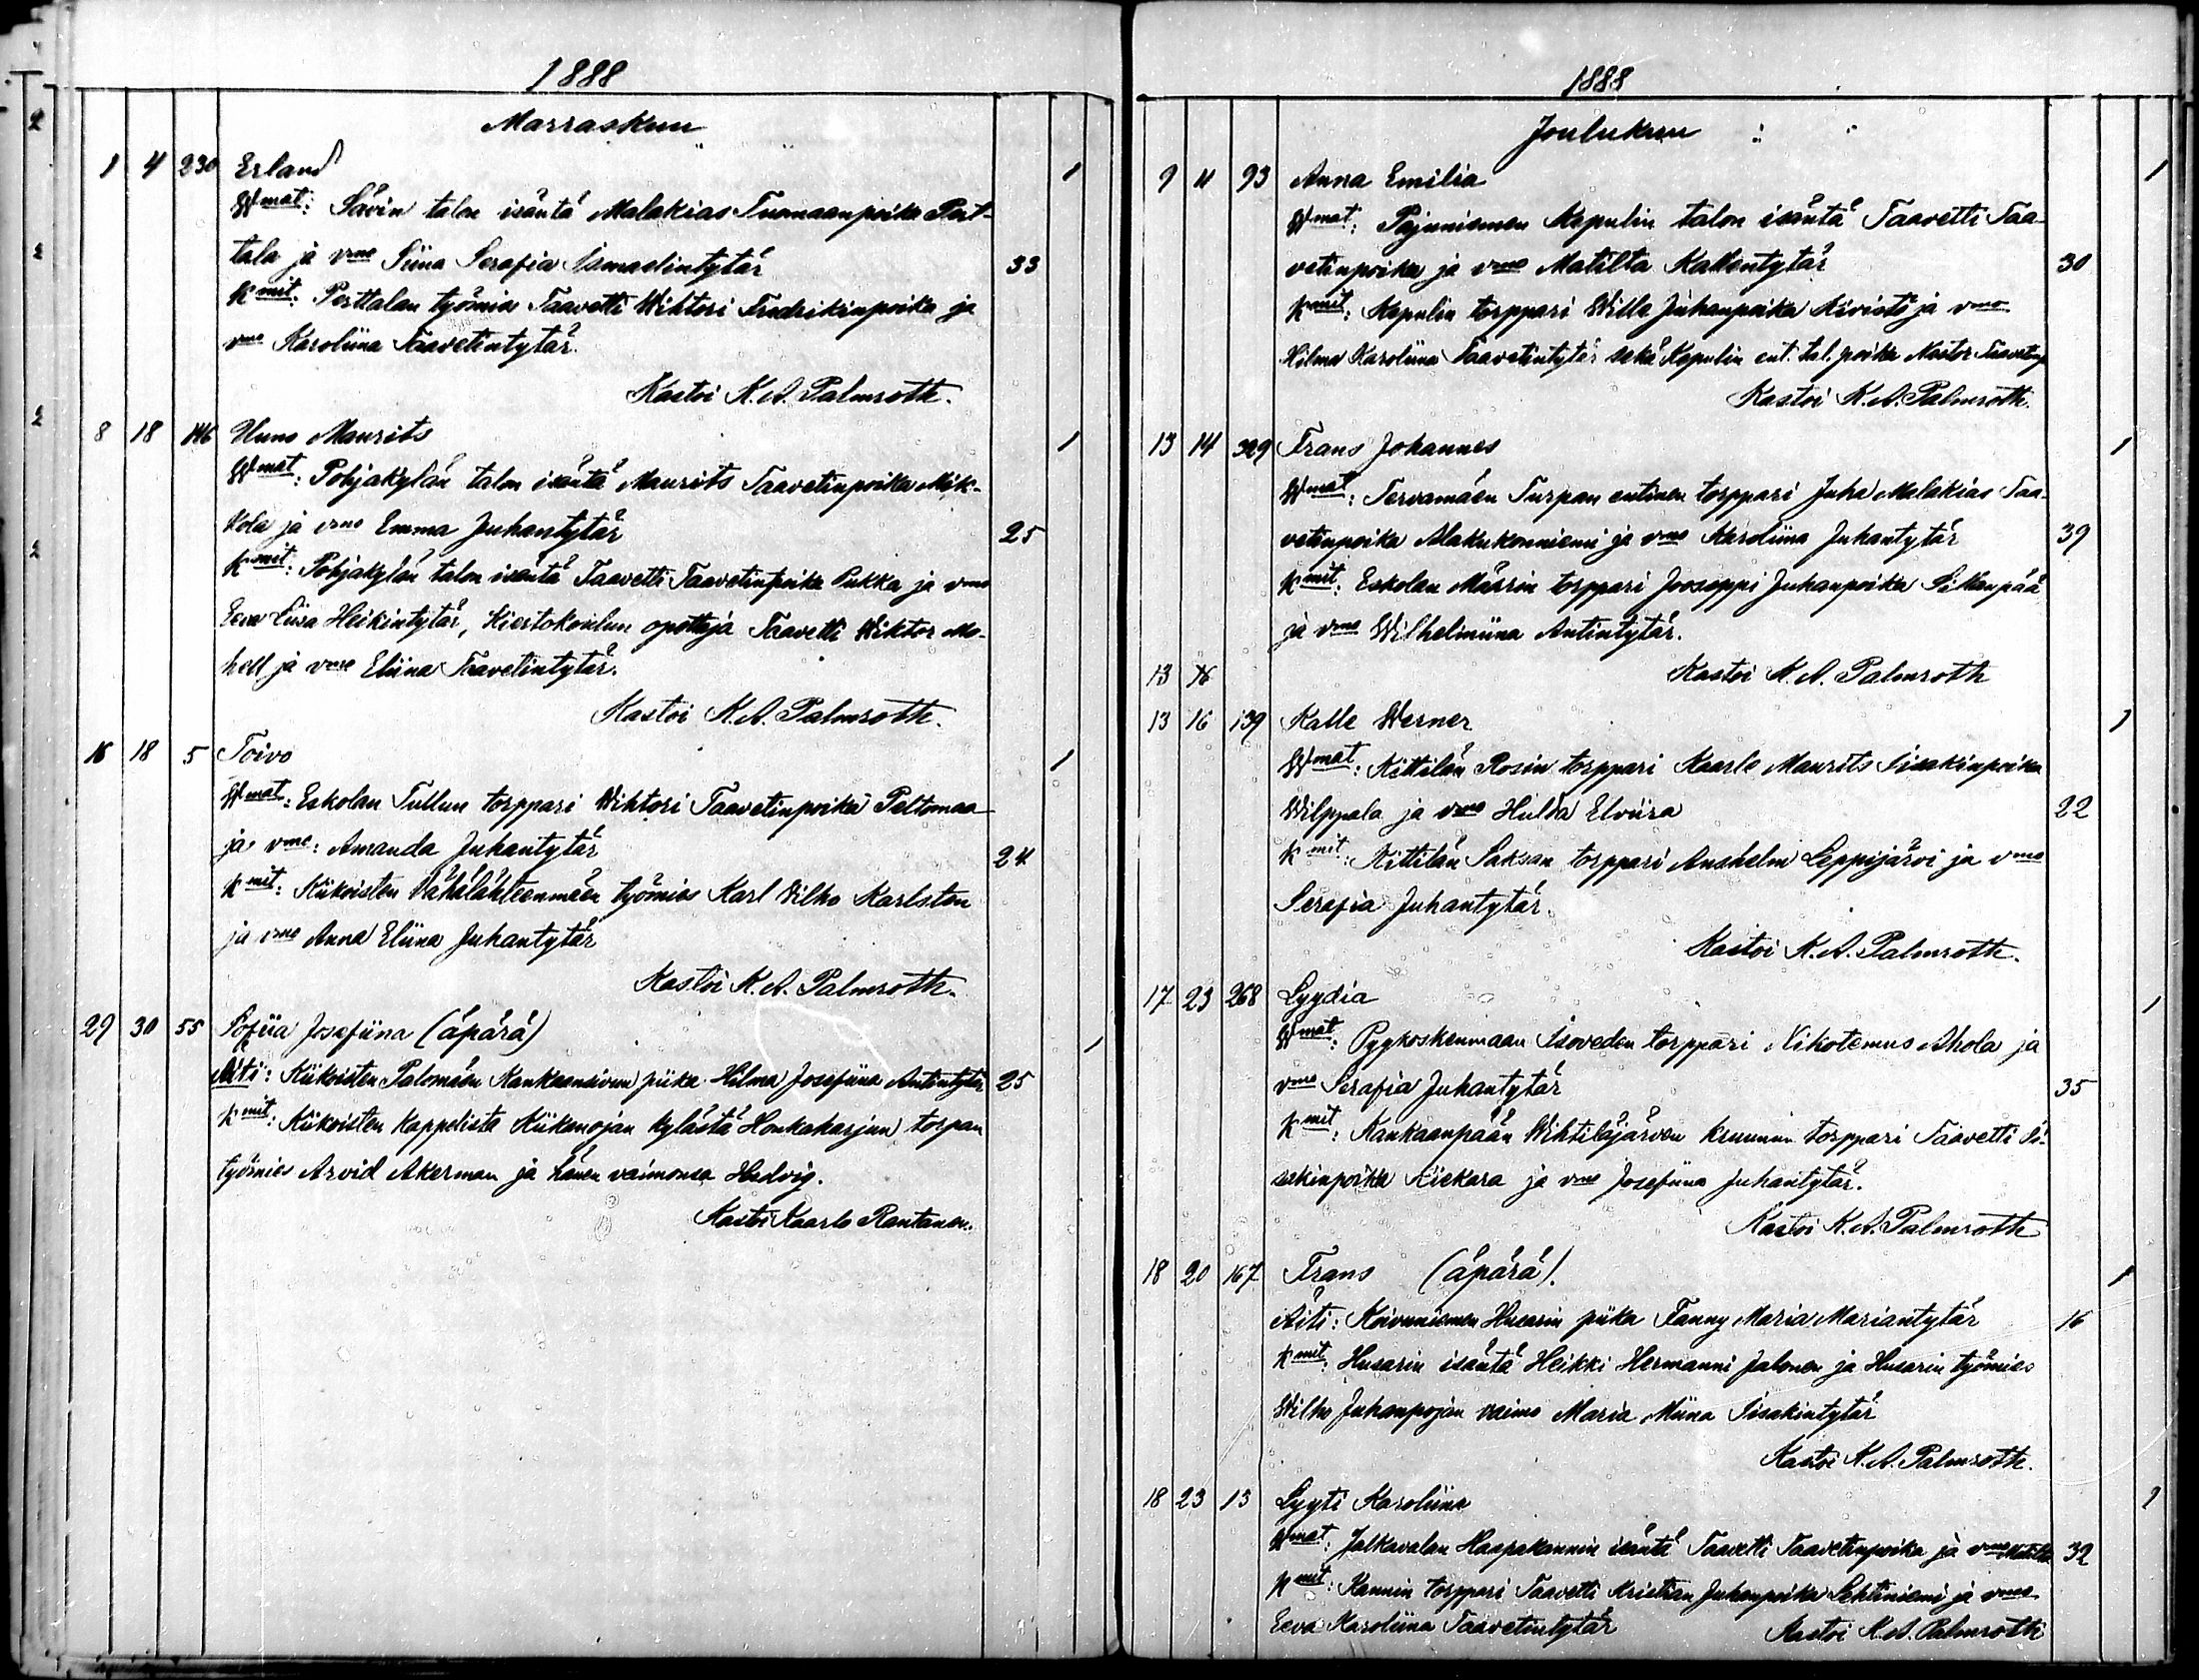 1888
Marraskuu
1 4 230 Erland 1
Wmat: Sävin talon isäntä Malakias Tuomaanpoika Pert-
tala ja vmo Siina Serafia Ismaelintytär 33
Kmit: Perttalan työmies Taavetti Wihtori Fredrikinpoika ja
vmo Karoliina Taavetintytär.
Kastoi K. A. Palmroth.
8 18 146 Uuno Maurits 1
Wmat: Pohjakylän talon isäntä Maurits Taavetinpoika Mik-
kola ja vmo Emma Juhantytär 25
Kmit: Pohjakylän talon isäntä Taavetti Taavetinpoika Pukka ja vmo
Eeva Liisa Heikintytär, Kiertokoulun opettaja Taavetti Wiktor Mo-
hell ja vmo Eliina Taavetintytär.
Kastoi K. A. Palmroth.
16 18 5 Toivo 1
Wmat: Eskolan Tullun torppari Wihtori Taavetinpoika Peltomaa
ja vmo: Amanda Juhantytär 24
Kmit: Kiikoisten Vähälähteenmäen työmies Karl Vilho Karlsten
ja vmo Anna Eliina Juhantytär
Kastoi K. A. Palmroth.
29 30 55 Sofiia Josefiina (äpärä) 1
Äiti: Kiikoisten Palomäen Kankaansivun piika Hilma Josefiina Antintytär 25
Kmit: Kiikoisten Kappelista Kiikanojan kylästä Honkaharjun torpan
työmies Arvid Akerman ja hänen vaimonsa Hedvig.
Kastoi Kaarlo Rantanen.
1888
Joulukuu
9 11 93 Anna Emilia 1
Wmat: Pajuniemen Kapulin talon isäntä Taavetti Taa-
vetinpoika ja vmo Matilta Kallentytär 30
Kmit: Kapulin torppari Wille Juhanpoika Kivistö ja vmo
Hilma Karoliina Taavetintytär sekä Kapulin ent. tal. poika Nestor Taavetinp
Kastoi K. A. Palmroth.
13 14 329 Frans Johannes 1
Wmat: Tervamäen Turpan entinen torppari Juha Malakias Taa-
vetinpoika Alakukonniemi ja vmo Karoliina Juhantytär 39
Kmit: Eskolan Mässin torppari Jooseppi Juhanpoika Siltanpää
ja vmo Wilhelmiina Antintytär.
13 16 Kastoi K. A. Palmroth
13 16 139 Kalle Werner 1
Wmat: Kittilän Rosin torppari Kaarle Maurits Iisakinpoika
Wilppala ja vmo Hulda Elviira 22
Kmit: Kittilän Saksan torppari Anshelm Leppijärvi ja vmo
Serafia Juhantytär.
Kastoi K. A. Palmroth.
17 23 268 Lyydia 1
Wmat: Pyykoskenmaan Isoveden torppari Nikotemus Ahola ja
vmo Serafia Juhantytär 35
Kmit: Kankaanpään Wihtiläjärven kruunun torppari Taavetti Ii-
sakinpoika Kiekara ja vmo Josefiina Juhantytär.
Kastoi K. A. Palmroth
18 20 167 Frans (äpärä). 1
Äiti: Koivuniemen Husarin piika Fanny Maria Mariantytär 16
Kmit: Husarin isäntä Heikki Hermanni Jalonen ja Husarin työmies
Wilho Juhanpojan vaimo Maria Miina Iisakintytär
Kastoi K. A. Palmroth.
18 23 13 Lyyti Karoliina 1
Wmat: Jalkavalan Haapakannin isäntä Taavetti Taavetinpoika ja vmo Matilta 32
Kmit: Kannin torppari Taavetti Kristian Juhanpoika Lehtiniemi ja vmo
Eeva Karoliina Taavetintytär Kastoi K. A. Palmroth